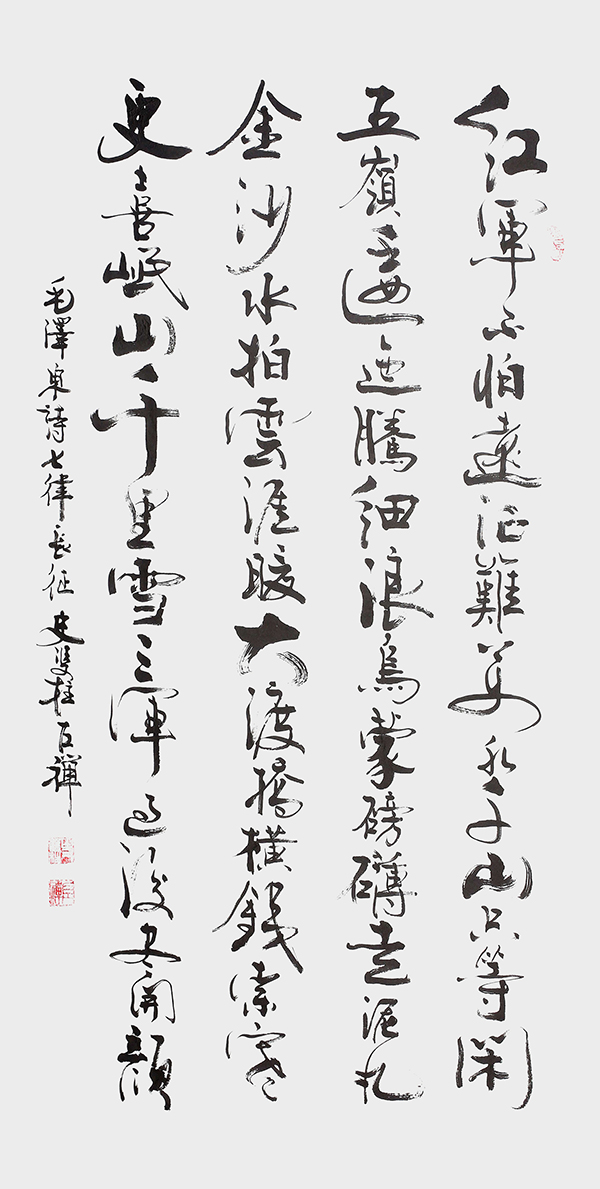 紅軍不怕遠征難萬水千山只等閑
五嶺逶迤騰細浪烏蒙磅礴走泥丸
金沙水拍雲涯暖大渡橋橫鐵索寒
更喜岷山千里雪三軍過後尽開顏
毛澤東詩七律長征 史雙柱 禪